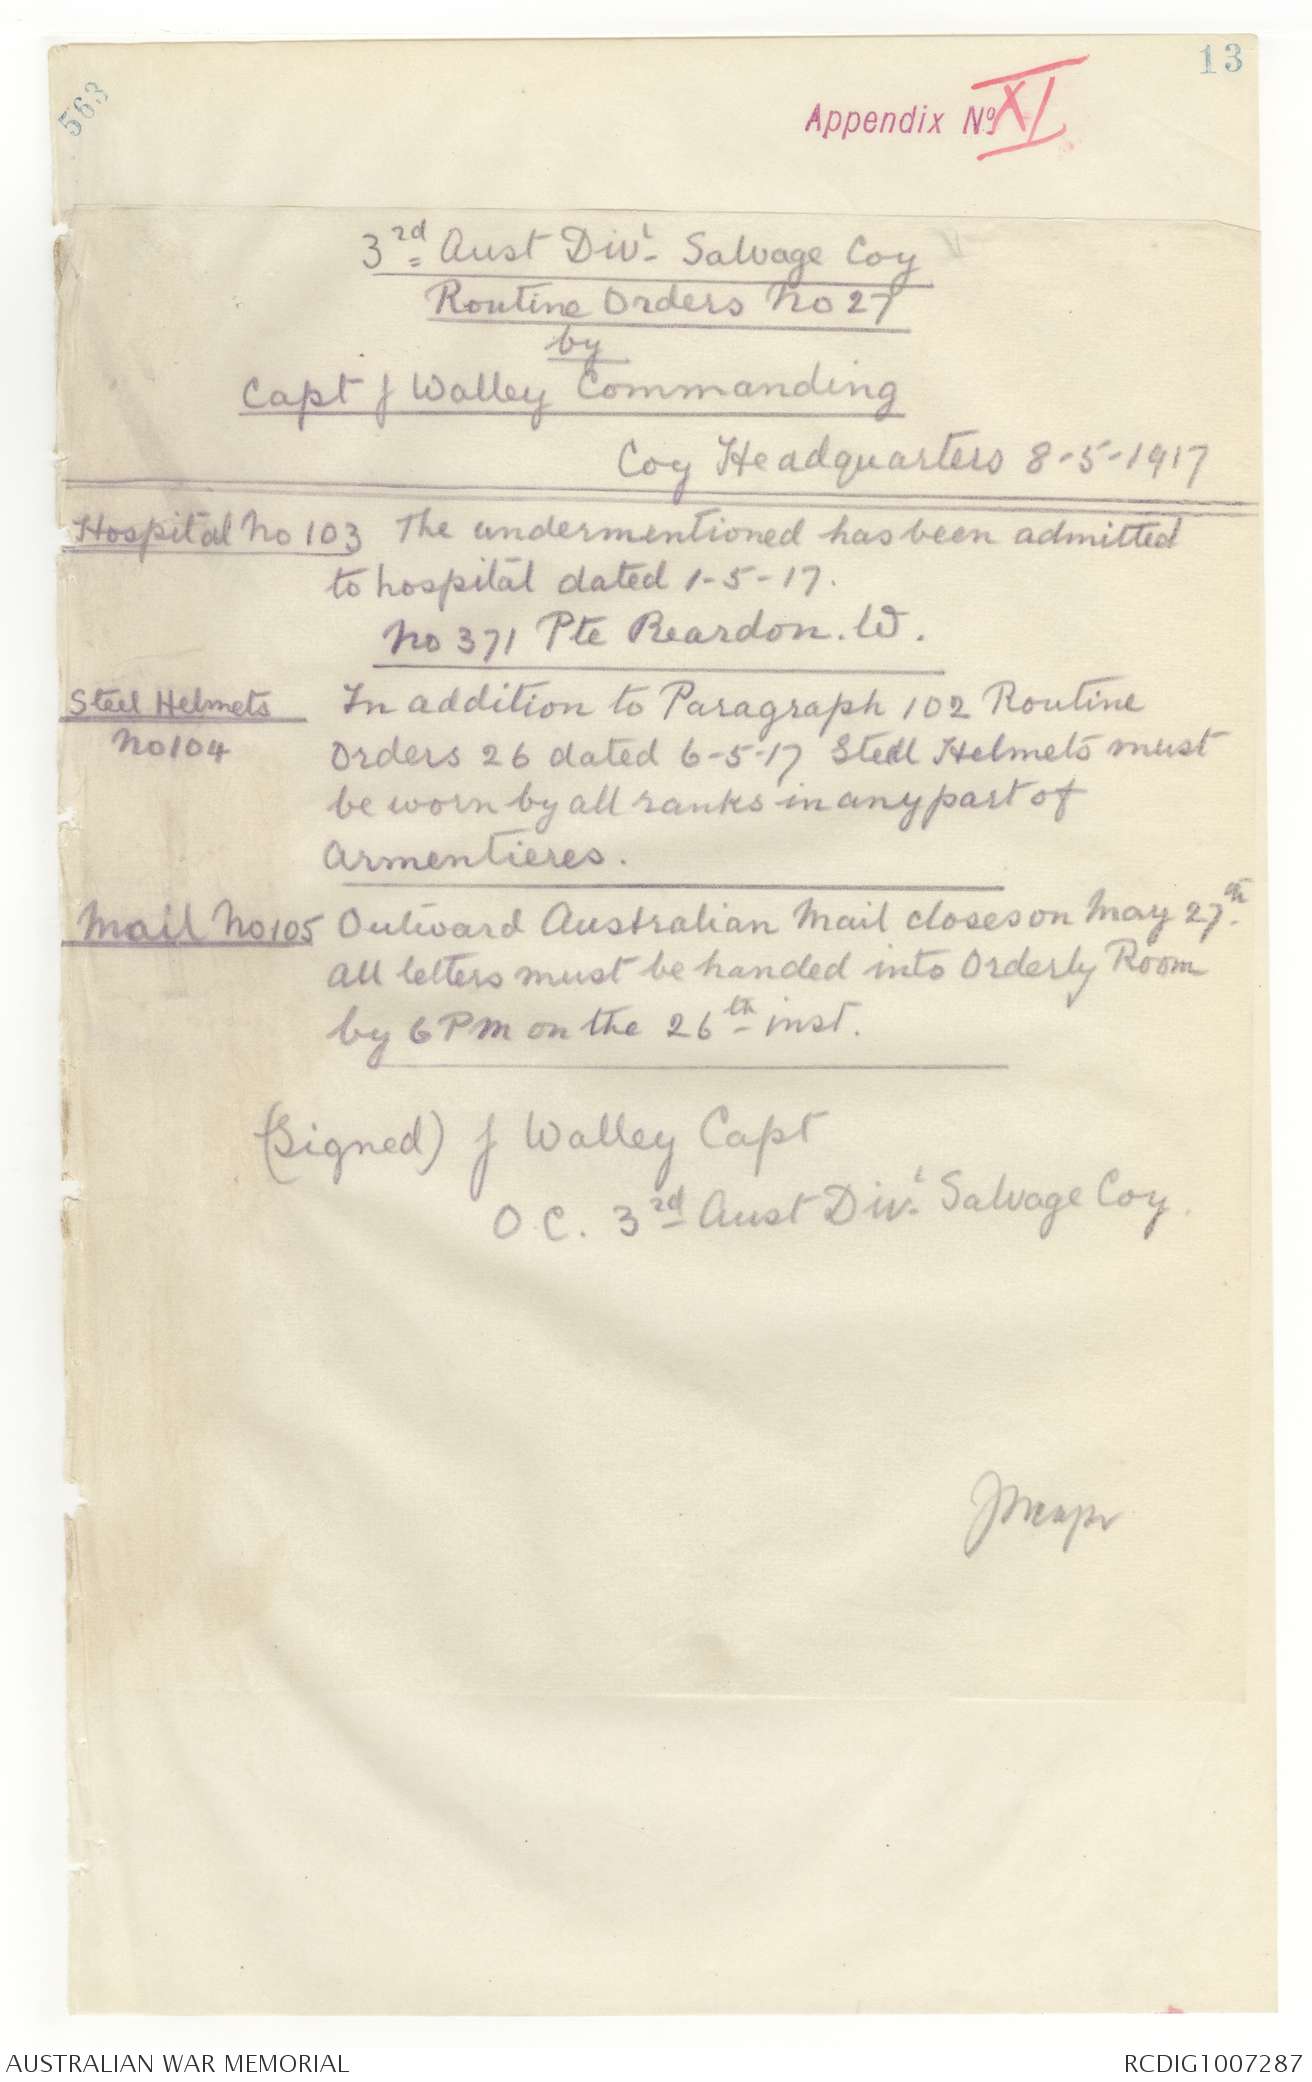 13
563
Appendix No XI
3rd Aust Divl Salvage Coy
Routine Orders No 27
by
Capt J Walley Commanding
Coy Headquarters 8-5-1917
Hospital No 103 The undermentioned has been admitted
to hospital dated 1-5-17.
No 371 Pte Reardon. W.
Steel Helmets In addition to Paragraph 102 Routine
No 104 Orders 26 dated 6-5-17 Steel Helmets must
be worn by all ranks in any part of
Armentieres.
Mail No 105 Outward Australian Mail closes on May 27th.
All letters must be handed into Orderly Room
by 6 PM on the 26th inst.
(Signed) J Walley Capt
O.C. 3rd Aust Divl Salvage Coy.
AUSTRALIAN WAR MEMORIAL
RCDIG1007287